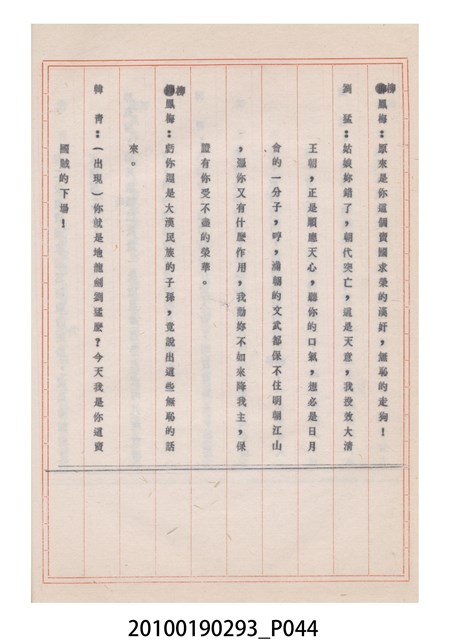 柳鳳梅：原來是你這個賣國求榮的漢奸，無恥的走狗！
劉　猛：姑娘妳錯了，朝代突亡，這是天意，我投效大清
王朝，正是順應天心，聽你的口氣，想必是日月
會的一分子，哼，滿朝的文武都保不住明朝江山
，憑你又有什麼作用，我勸妳不如來降我主，保
證有你受不盡的榮華。
柳鳳梅：虧你還是大漢民族的子孫，竟說出這些無恥的話
來。
韓　青：（出現）你就是地龍劍劉猛麼？今天我是你這賣
國賊的下場！
20100190293_P044